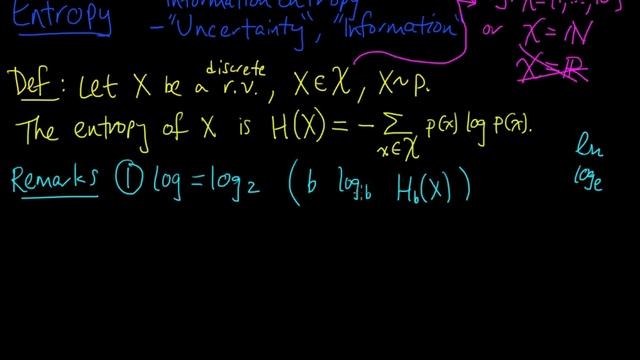 Entropy
Information Entropy
- "Uncertainty", "Information"
or X = ℕ
X = ℝ
Def: Let X be a discrete r.v., X ∈ X, X ~ p.
The entropy of X is H(X) = - ∑ p(x) log p(x).
x ∈ X
Remarks ① log = log₂ (b log_b H_b(X))
ln
logₑ